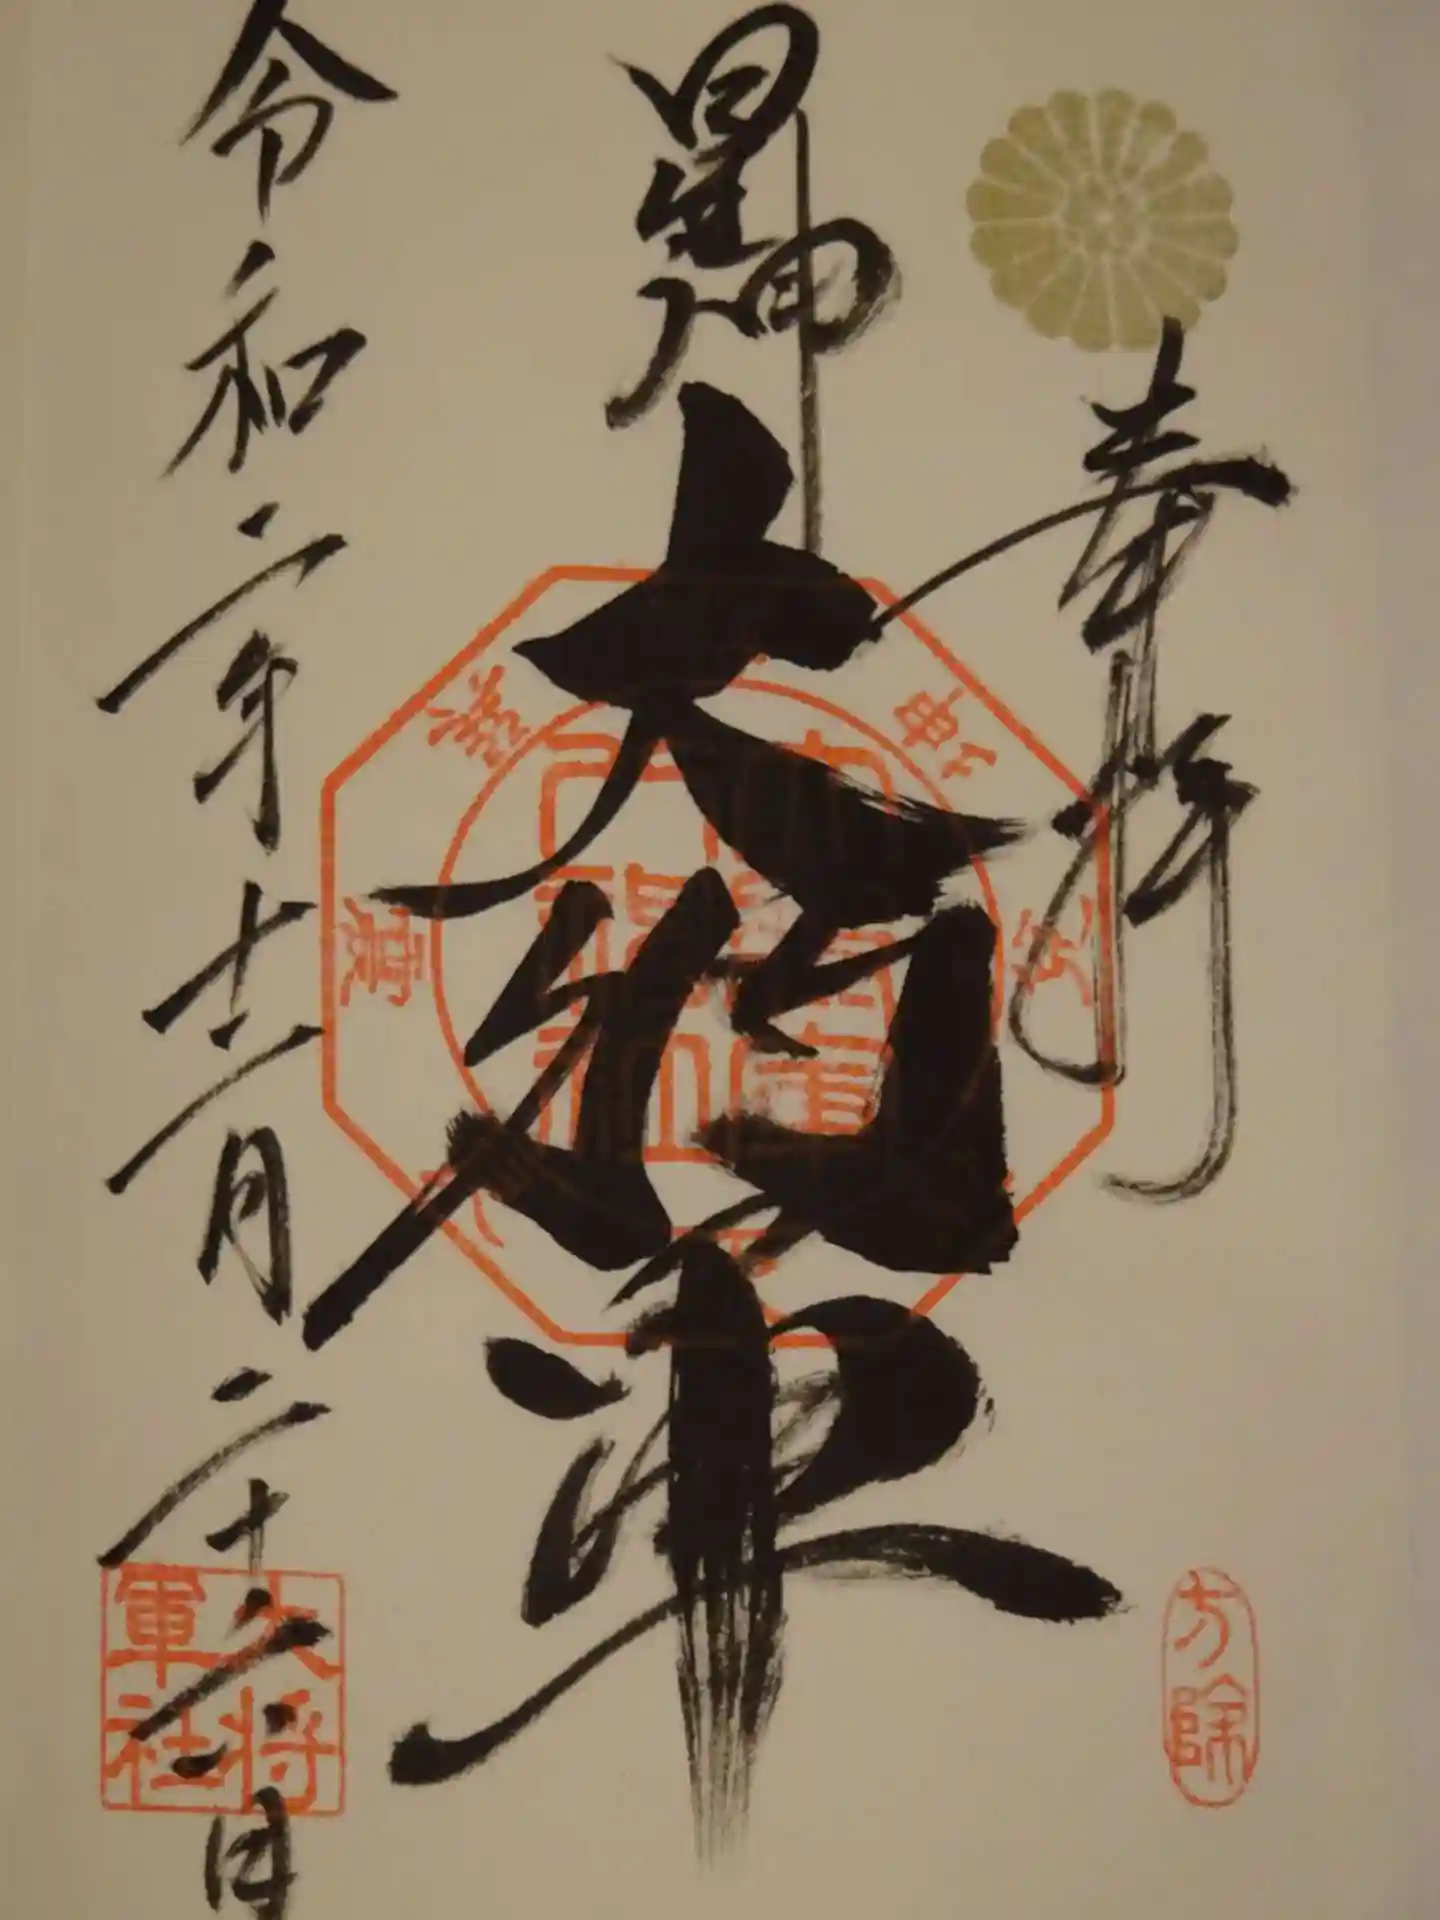 奉拝
星神
大将軍
令和二年十二月二十六日
方除
大将
軍社